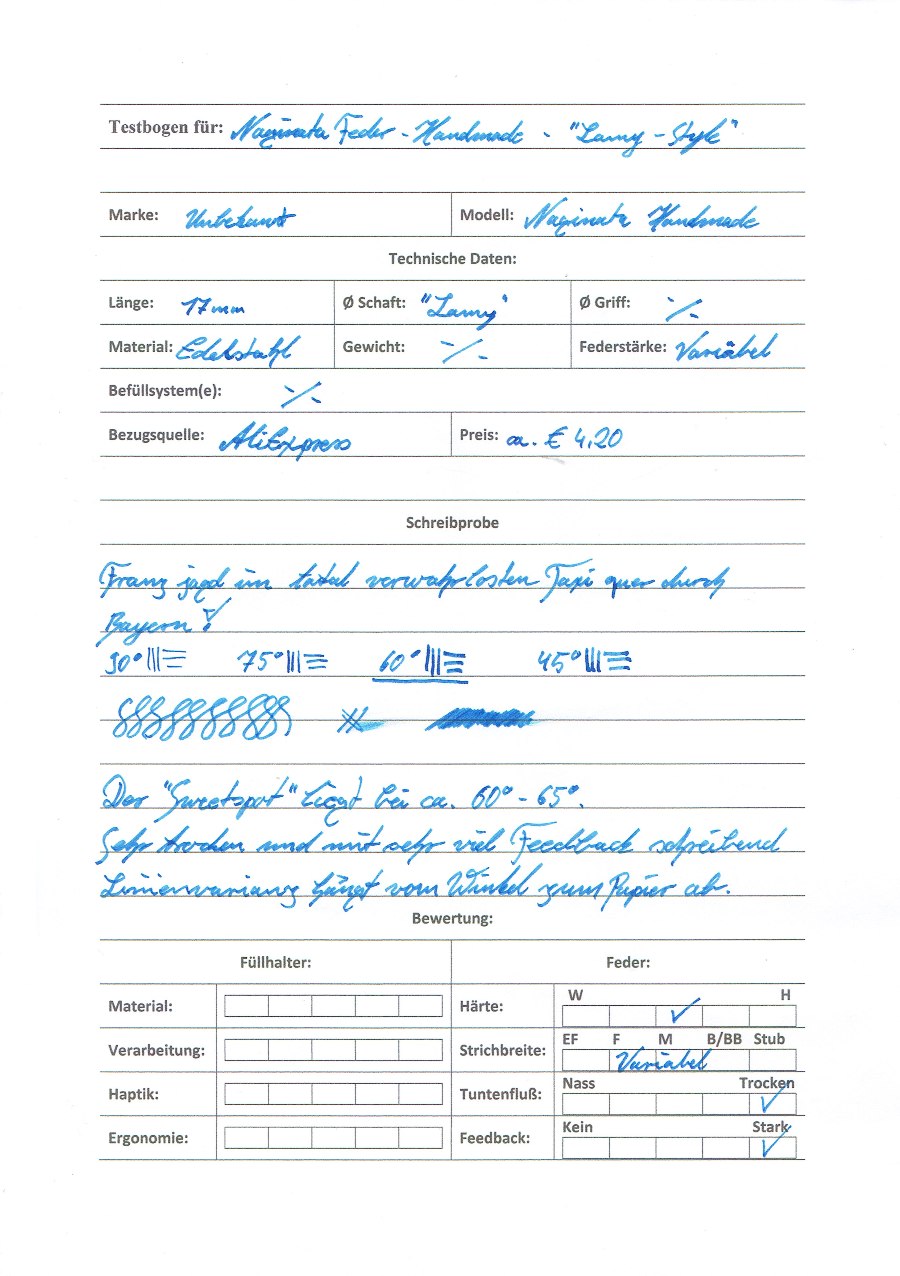 Testbogen für: Naginata Feder - Handmade - "Lamy - Style"
Marke: Unbekannt Modell: Naginata Handmade
Technische Daten:
Länge: 17mm Ø Schaft: "Lamy" Ø Griff: ·/.
Material: Edelstahl Gewicht: ·/. Federstärke: Variabel
Befüllsystem(e): ·/.
Bezugsquelle: AliExpress Preis: ca. € 4,20
Schreibprobe
Franz jagd im total verwahrlosten Taxi quer durch
Bayern!
90° 75° 60° 45°
Der "Sweetspot" liegt bei ca. 60° - 65°.
Sehr trocken und mit sehr viel Feedback schreibend
Linienvarianz hängt vom Winkel zum Papier ab.
Bewertung:
Füllhalter: Feder:
Material: Härte: W H
Verarbeitung: Strichbreite: EF F M B/BB Stub
Variabel
Haptik: Tuntenfluß: Nass Trocken
Ergonomie: Feedback: Kein Stark